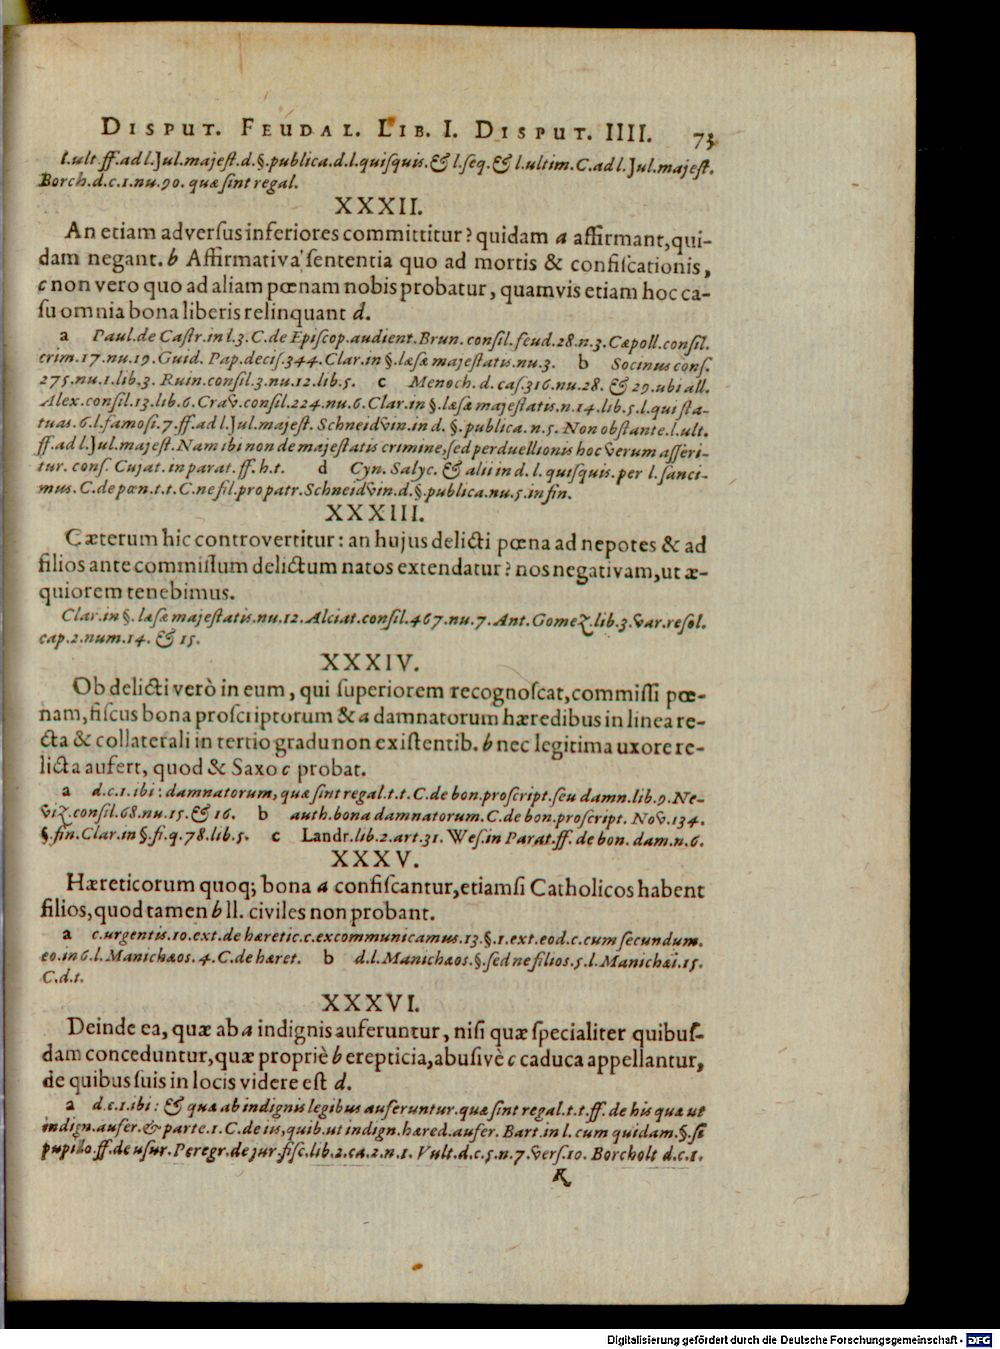 Disput. Feudal. Lib. I. Disput. IIII. 73
l.ult.ff.ad l.Jul.majest.d.§.publica.d.l.quisquis.& l.seq.& l.ultim.C.ad l.Jul.majest.
Borch.d.c.1.nu.90. quæ sint regal.
XXXII.
An etiam adversus inferiores committitur? quidam a affirmant, qui-
dam negant. b Affirmativa sententia quo ad mortis & confiscationis,
c non vero quo ad aliam pœnam nobis probatur, quamvis etiam hoc ca-
su omnia bona liberis relinquant d.
a Paul.de Castr.in l.3.C.de Episcop.audient.Brun. consil.feud.28.n.3.Cæpoll.consil.
crim.17.nu.19.Guid. Pap.decis.344.Clar.in §.læsæ majestatis.nu.3. b Socinus cons.
275.nu.1.lib.3. Ruin.consil.3.nu.12.lib.5. c Menoch.d.cas.316.nu.28. & 29.ubi all.
Alex.consil.13.lib.6.Crav.consil.224.nu.6.Clar.in §.læsæ majestatis.n.14.lib.5.l.qui sta-
tuas.6.l.famosi.7.ff.ad l.Jul.majest. Schneidvin.in d. §.publica.n.5.Non obstante.l.ult.
ff.ad l.Jul.majest.Nam ibi non de majestatis crimine,sed perduellionis hoc verum asseri-
tur. cons. Cujat.in parat.ff.h.t. d Cyn. Salyc. & alii in d. l. quisquis.per l.sanci-
mus.C.de pœn.t.t.C.ne fil.pro patr.Schneidvin.d.§.publica.nu.5.in fin.
XXXIII.
Cæterum hic controvertitur: an hujus delicti pœna ad nepotes & ad
filios ante commissum delictum natos extendatur? nos negativam, ut æ-
quiorem tenebimus.
Clar.in §. læsæ majestatis.nu.12.Alciat.consil.467.nu.7.Ant.Gomez.lib.3.var.resol.
cap.2.num.14. & 15.
XXXIV.
Ob delicti verò in eum, qui superiorem recognoscat, commissi pœ-
nam, fiscus bona proscriptorum & a damnatorum hæredibus in linea re-
cta & collaterali in tertio gradu non existentib. b nec legitima uxore re-
licta aufert, quod & Saxo c probat.
a d.c.1.ibi: damnatorum, quæ sint regal.t.t.C.de bon.proscript.seu damn.lib.9.Ne-
viz.consil.68.nu.15.& 16. b auth.bona damnatorum.C.de bon.proscript. Nov.134.
§.fin.Clar.in §.fi.q.78.lib.5. c Landr.lib.2.art.31. Wes.in Parat.ff. de bon. dam.n.6.
XXXV.
Hæreticorum quoq; bona a confiscantur, etiamsi Catholicos habent
filios, quod tamen b ll. civiles non probant.
a c.urgentis.10.ext.de hæretic.c.excommunicamus.13.§.1.ext.eod.c.cum secundum.
eo.in 6.l.Manichæos.4.C.de hæret. b d.l.Manichæos.§.sed ne filios.5.l.Manichæi.15.
C.d.t.
XXXVI.
Deinde ea, quæ ab a indignis auferuntur, nisi quæ specialiter quibus-
dam conceduntur, quæ propriè b erepticia, abusivè c caduca appellantur,
de quibus suis in locis videre est d.
a d.c.1.ibi: & quæ ab indignis legibus auferuntur.quæ sint regal.t.t.ff.de his quæ ut
indign.aufer.& parte.1.C.de iis,quib.ut indign.hæred.aufer. Bart.in l.cum quidam.§.si
pupillo.ff.de usur.Peregr.de jur.fisc.lib.2.ca.2.n.1. Vult.d.c.5.n.7.vers.10. Borcholt d.c.1.
K
Digitalisierung gefördert durch die Deutsche Forschungsgemeinschaft - DFG